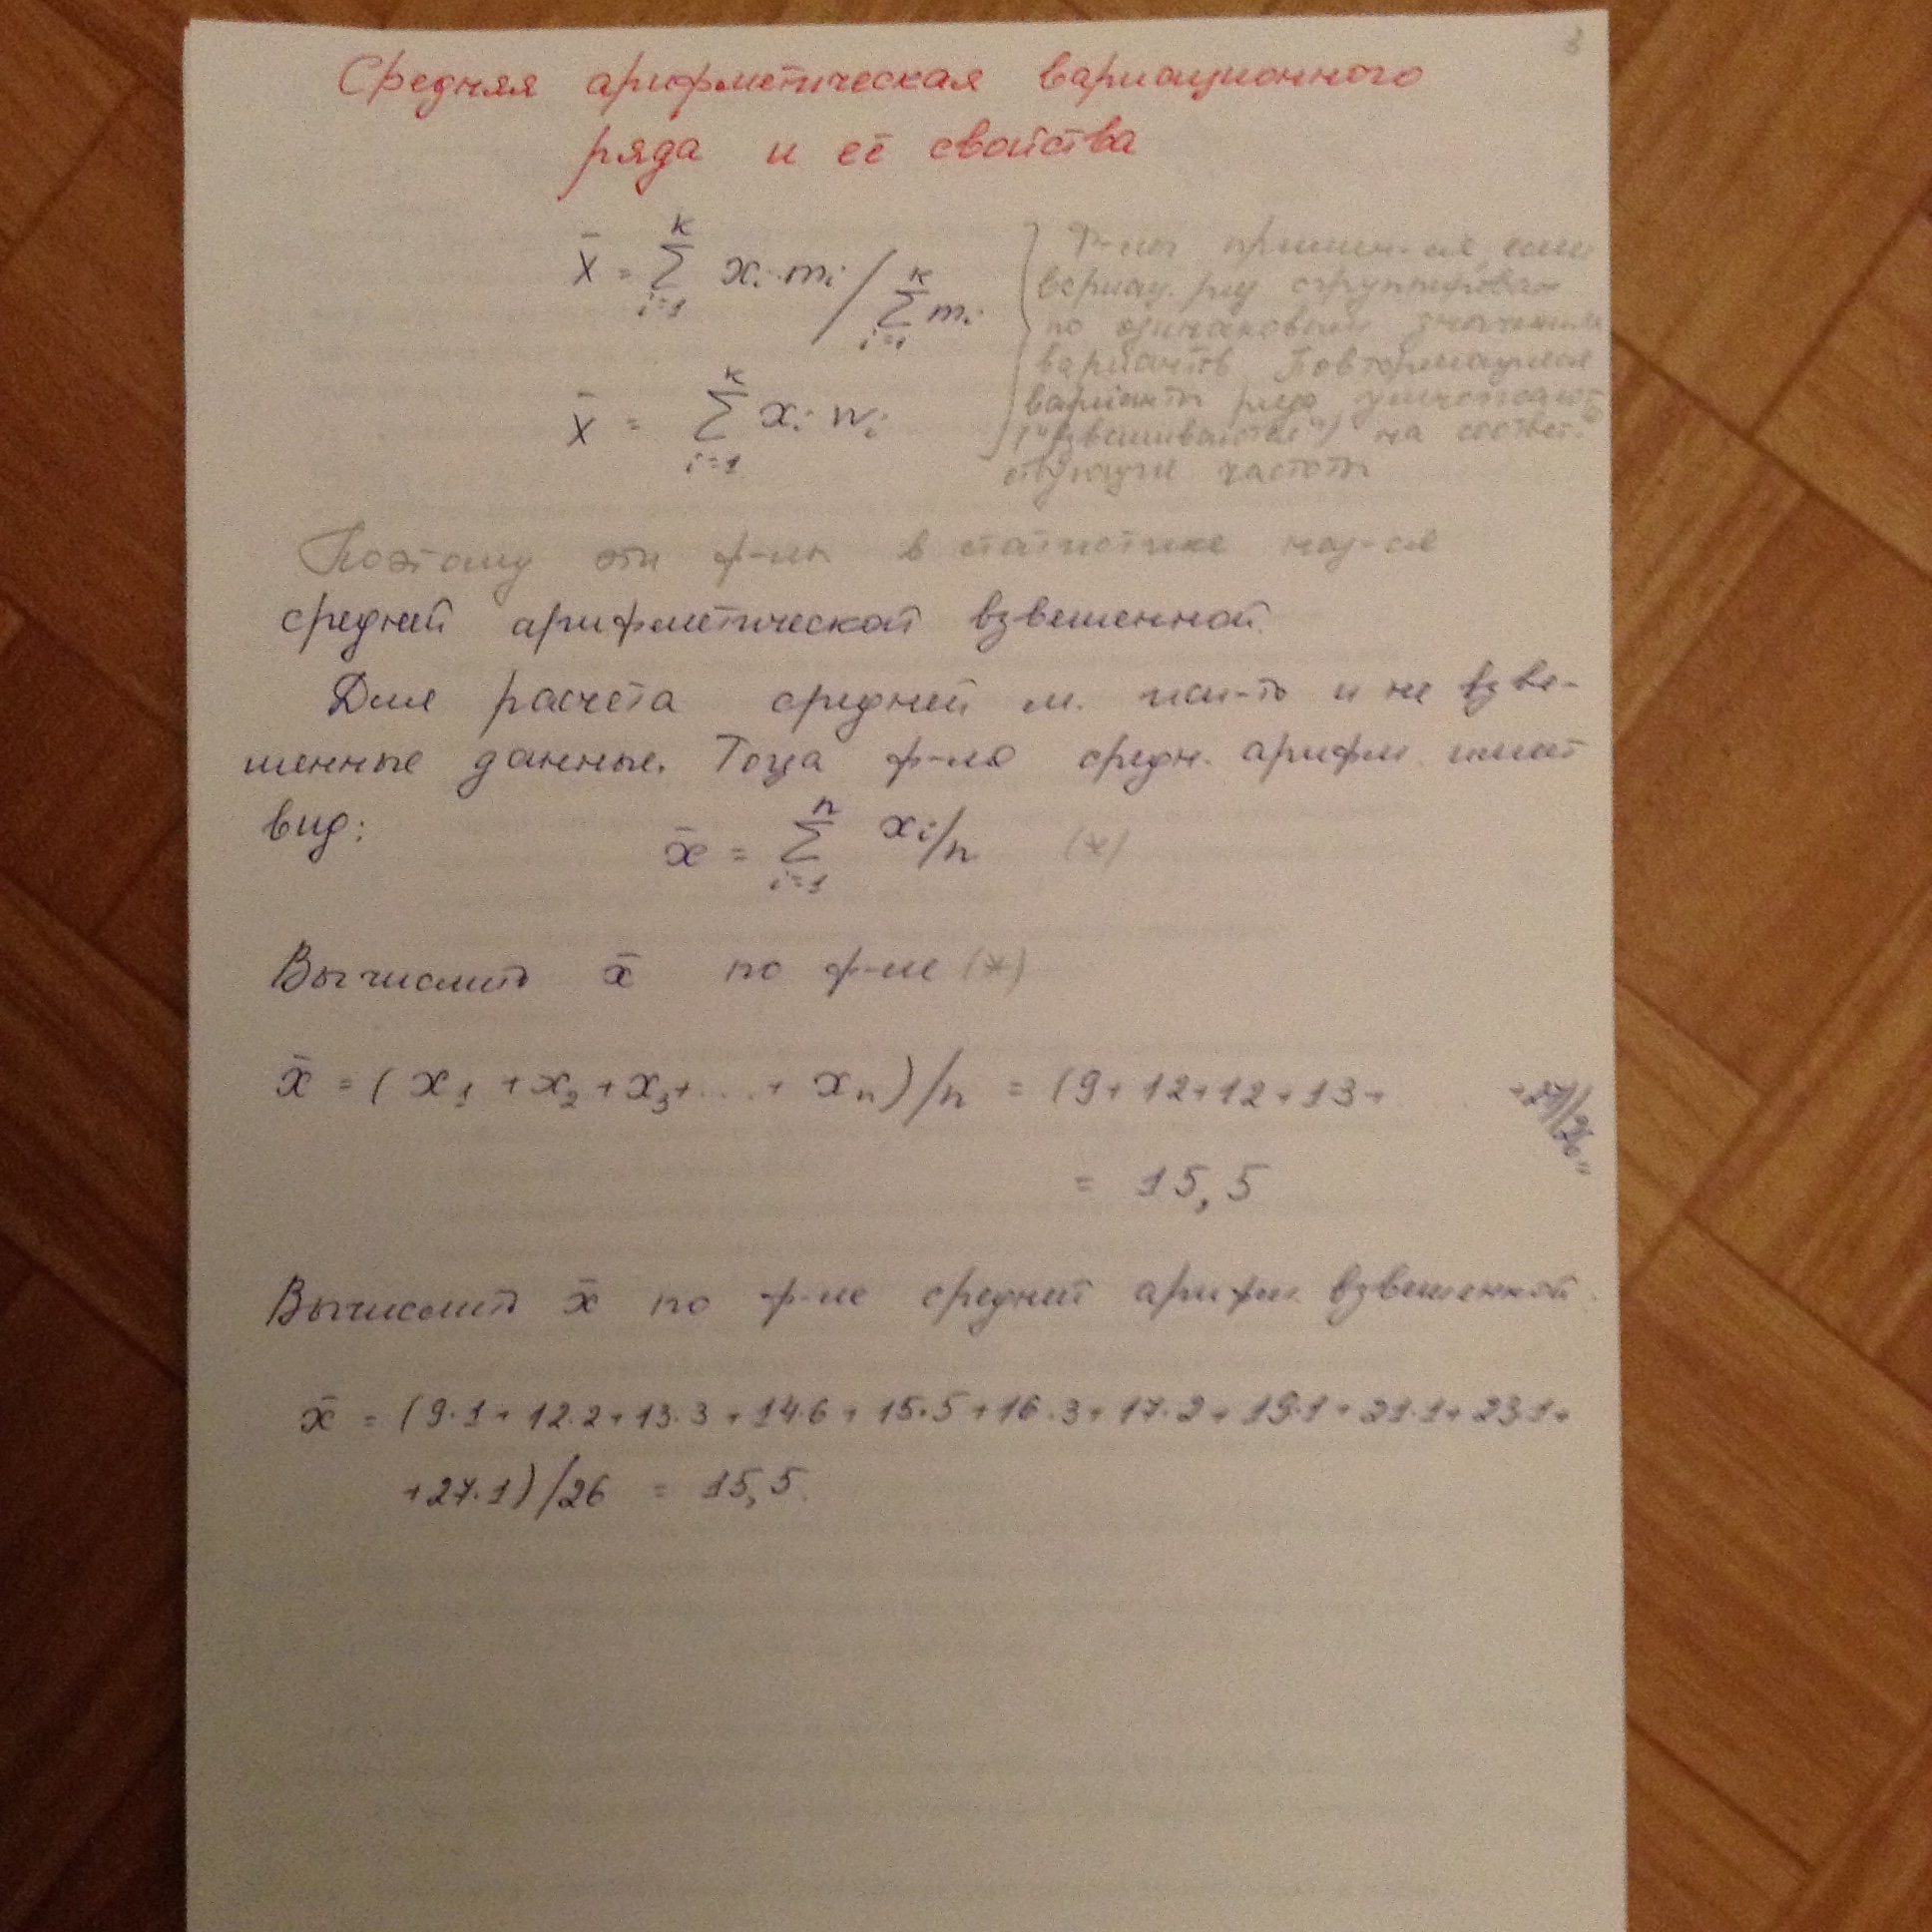 3
Средняя арифметическая вариационного
ряда и её свойства
x̄ = ∑ᵏᵢ₌₁ xᵢ·mᵢ / ∑ᵏᵢ₌₁ mᵢ
x̄ = ∑ᵏᵢ₌₁ xᵢ·wᵢ
Ф-лы примен-ся, если
вариац. ряд сгруппирован
по одинаковым значениям
вариантов. Повторяющиеся
варианты ряда умножают
("взвешиваются") на соответ-
ствующие частоты
Поэтому эти ф-лы в статистике наз-ся
средней арифметической взвешенной.
Для расчёта средней м. исп-ть и не взве-
шенные данные. Тогда ф-ла средн. арифм. имеет
вид:
x̄ = ∑ⁿᵢ₌₁ xᵢ/n (*)
Вычислить x̄ по ф-ле (*)
x̄ = (x₁ + x₂ + x₃+ ... + xₙ)/n = (9+12+12+13+ +27)/26=
= 15,5
Вычислить x̄ по ф-ле средней арифм. взвешенной.
x̄ = (9·1+12·2+13·3+14·6+15·5+16·3+17·2+19·1+21·1+23·1+
+27·1)/26 = 15,5.